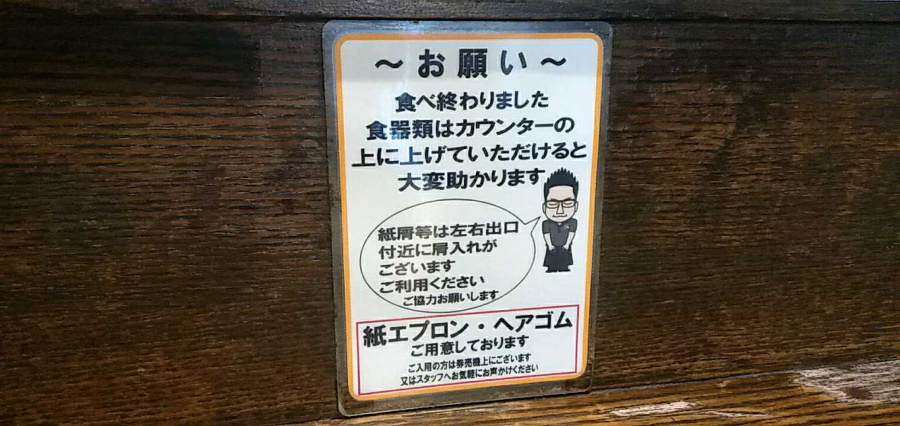 ～お願い～
食べ終わりました
食器類はカウンターの
上に上げていただけると
大変助かります
紙屑等は左右出口
付近に屑入れが
ございます
ご利用ください
ご協力お願いします
紙エプロン・ヘアゴム
ご用意しております
ご入用の方は券売機上にございます
又はスタッフへお気軽にお声かけください